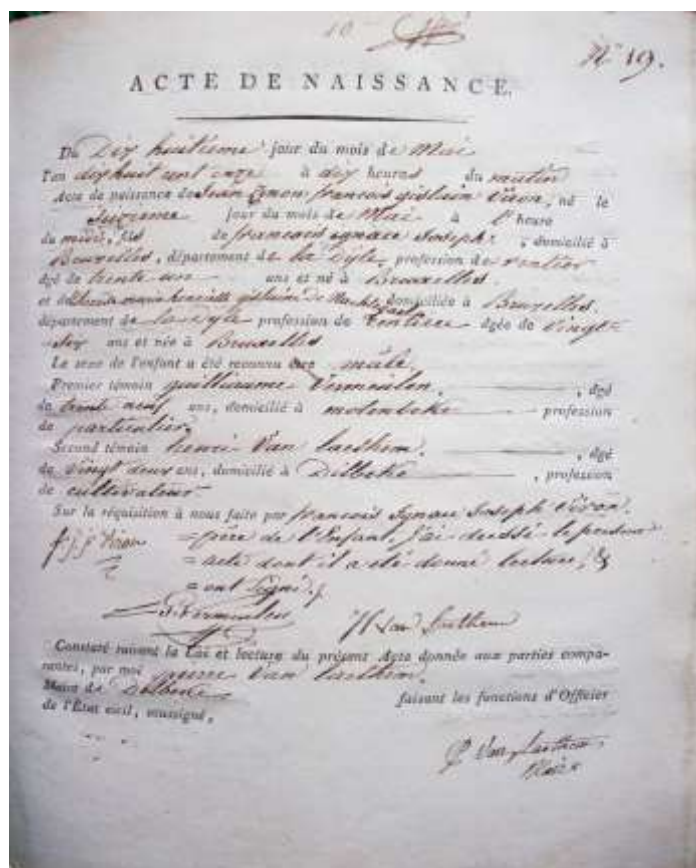 10
N° 19.
ACTE DE NAISSANCE.
Du Dix huitieme jour du mois de Mai
l'an dix huit cent onze à dix heures du matin
Acte de naissance de Jean François gislain Viron, né le
jour du mois de Mai à l heure
du midi, fils de francois ignace Joseph, domicilié à
Bruxelles, département de la Dyle, profession de rentier
âgé de trente un ans et né à Bruxelles.
et de marie henriette gislaine domiciliée à Bruxelles.
département de la Dyle profession de rentiere âgée de vingt
ans et née à Bruxelles
Le sexe de l'enfant a été reconnu être mâle.
Premier témoin guilliaume Vermeulen, âgé
de trente neuf ans, domicilié à molenbeke profession
de particulier,
Second témoin henri Van laethem. âgé
de vingt deux ans, domicilié à Dilbeke, profession
de cultivateur
Sur la réquisition à nous faite par françois Ignace Joseph Viron.
f. j. j. Viron = père de l'Enfant, j'ai dressé le présent
= acte dont il a été donné lecture, &
= ont signé.
Vermeulen H Van Laethem
Constaté suivant la Loi et lecture du présent Acte donnée aux parties compa-
rantes, par moi pierre Van laethem.
Maire de Dilbeke faisant les fonctions d'Officier
de l'État civil, soussigné,
P. Van Laethem
Maire